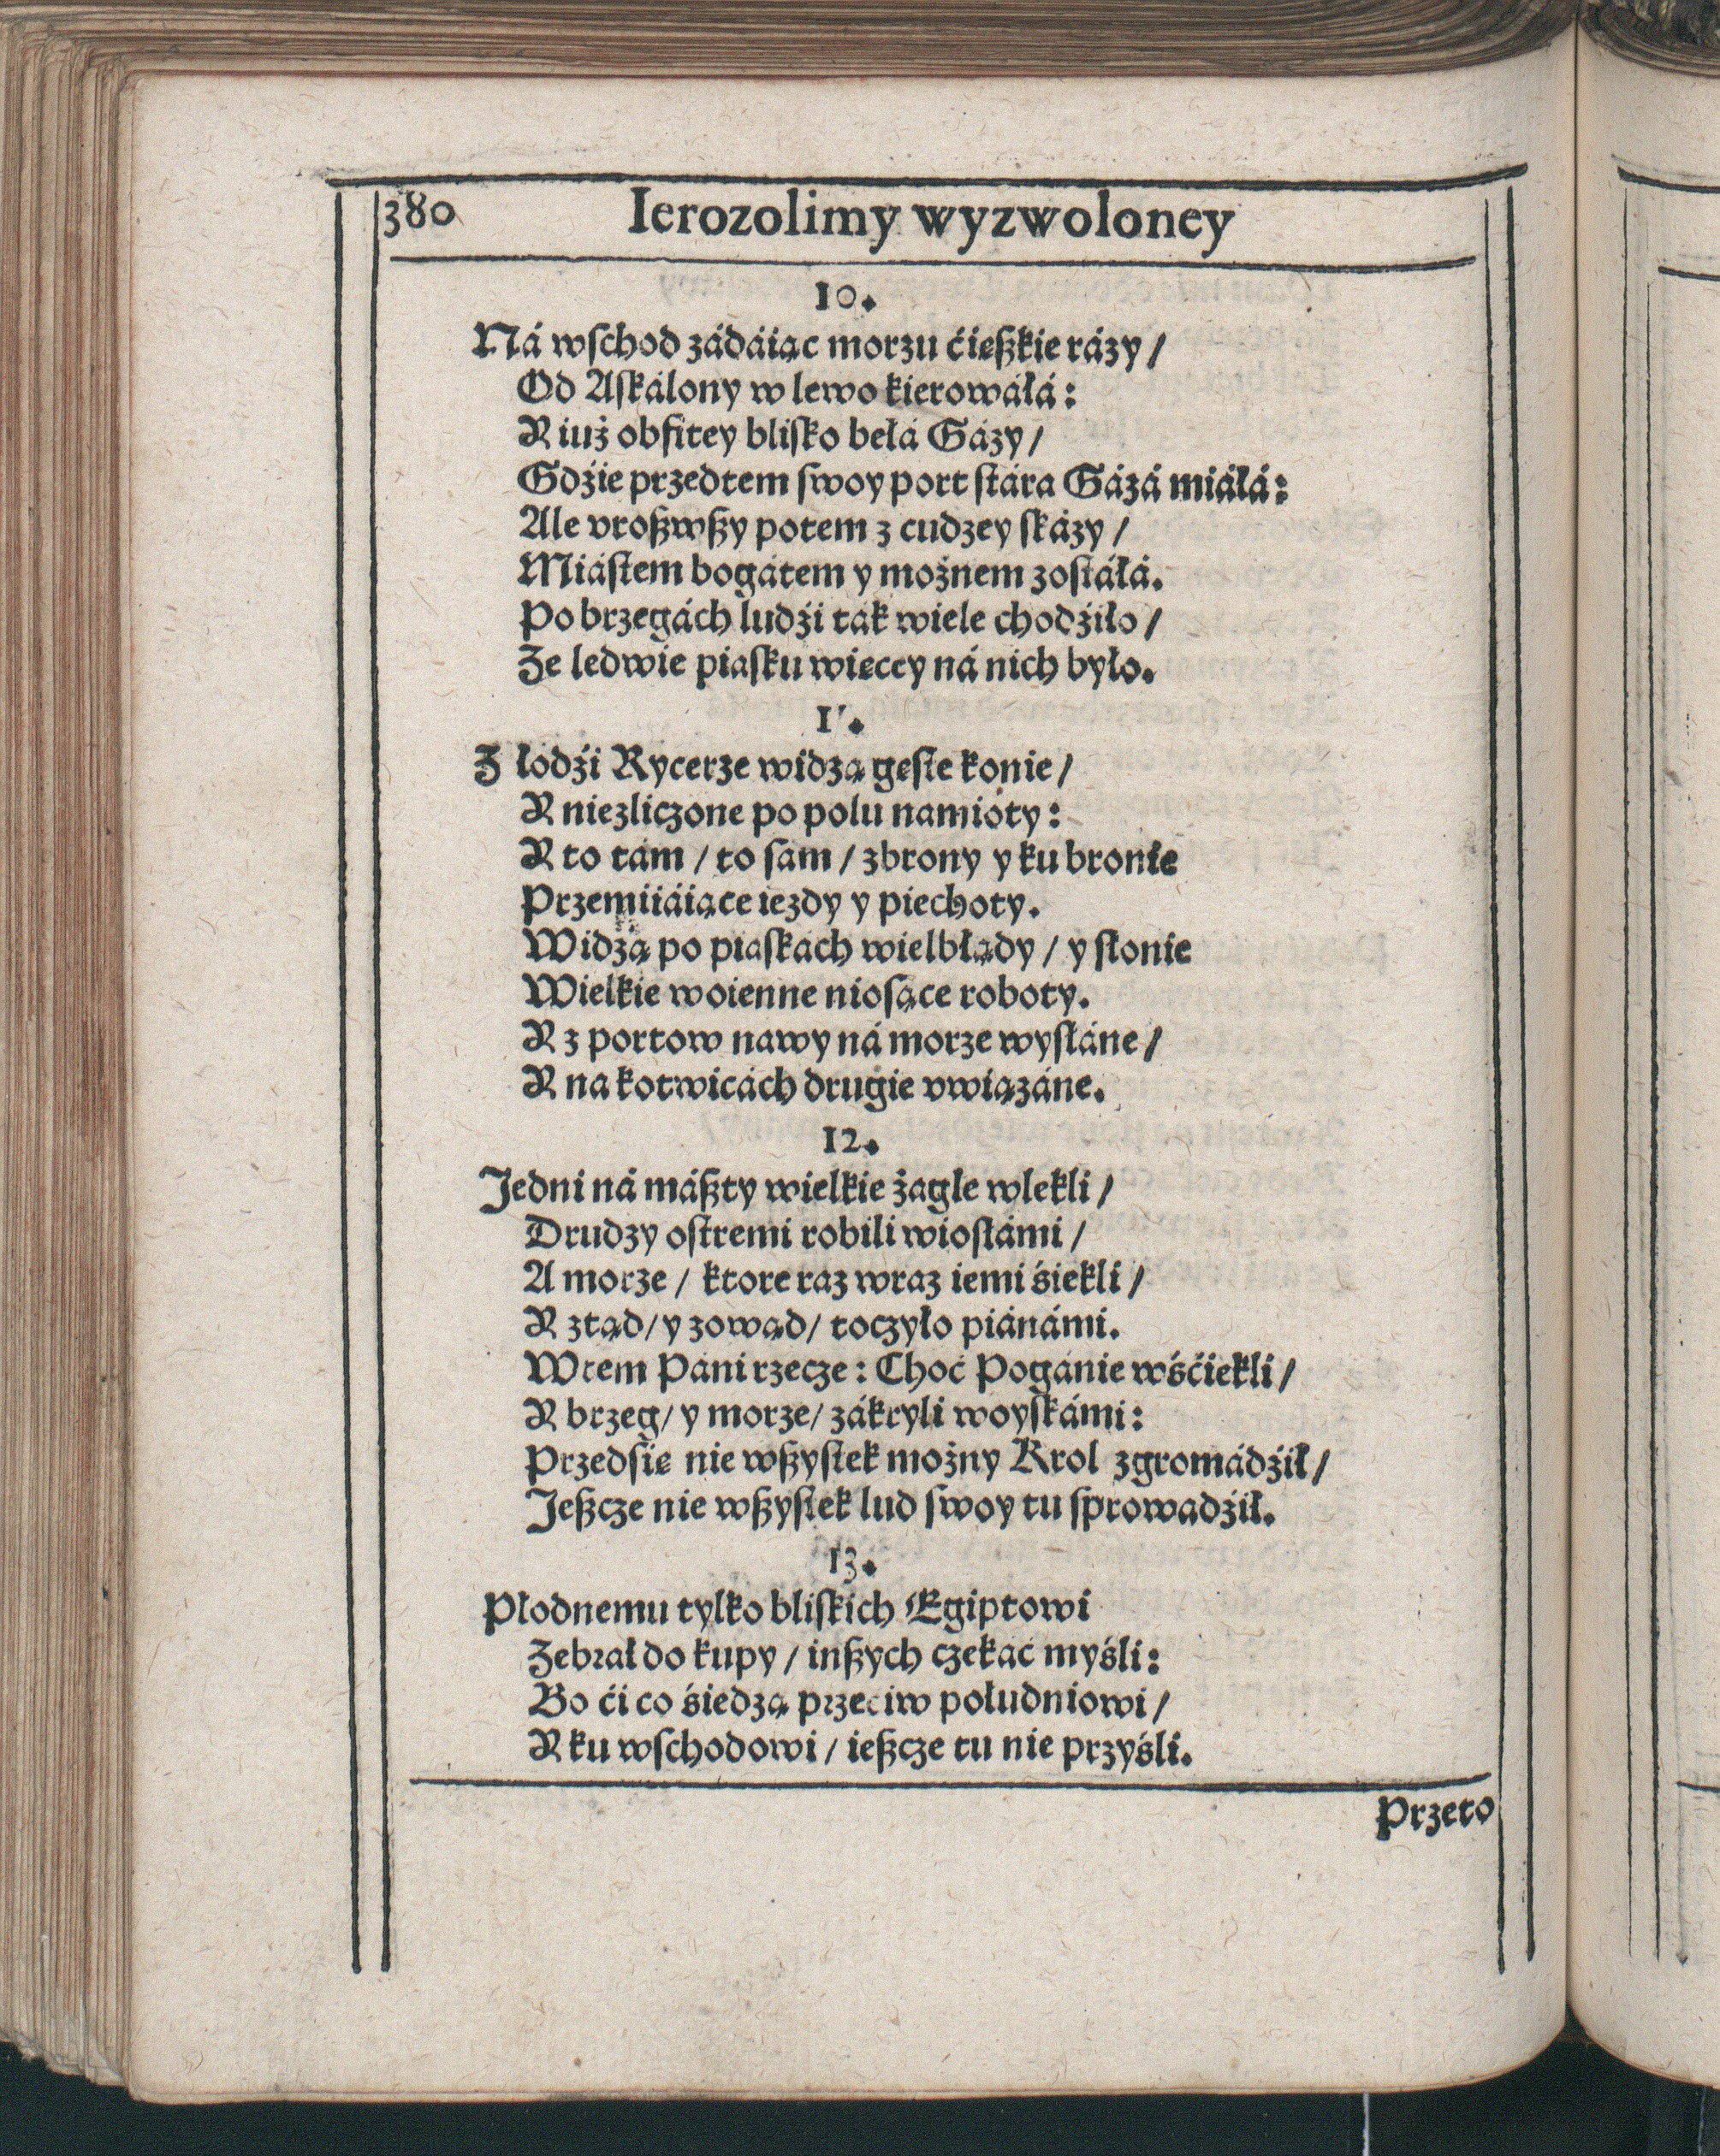 380 Ierozolimy wyzwoloney
10.
Ná wſchod zádáiąc morzu ćięßkie rázy /
Od Aſkálony w lewo kierowáłá:
Y iuż obfitey bliſko bełá Gázy /
Gdźie przedtem ſwoy port ſtára Gázá miáłá:
Ale vroßwßy potem z cudzey ſkázy /
Miáſtem bogátem y możnem zoſtáłá.
Po brzegách ludźi ták wiele chodźiło /
Ze ledwie piaſku więcey ná nich było.
11.
Z łodźi Rycerze widzą gęſte konie /
Y niezliczone po polu namioty:
Y to tám / to ſam / z brony y ku bronie
Przemiiáiące iezdy y piechoty.
Widzą po piaſkach wielbłądy / y słonie
Wielkie woienne nioſące roboty.
Y z portow nawy ná morze wysłáne /
Y na kotwicách drugie vwiązáne.
12.
Jedni ná máßty wielkie żagle wlekli /
Drudzy oſtremi robili wiosłámi /
A morze / ktore raz wraz iemi śiekli /
Y ztąd / y zowąd / toczyło piánámi.
Wtem Páni rzecze: Choć Pogánie wśćiekli /
Y brzeg / y morze / zákryli woyſkámi:
Przedſię nie wßyſtek możny Krol zgromádźił /
Jeßcze nie wßyſtek lud ſwoy tu ſprowadźił.
13.
Płodnemu tylko bliſkich Egiptowi
Zebrał do kupy / inßych czekać myśli:
Bo ći co śiedzą przeciw południowi /
Y ku wſchodowi / ießcze tu nie przyśli.
Przeto